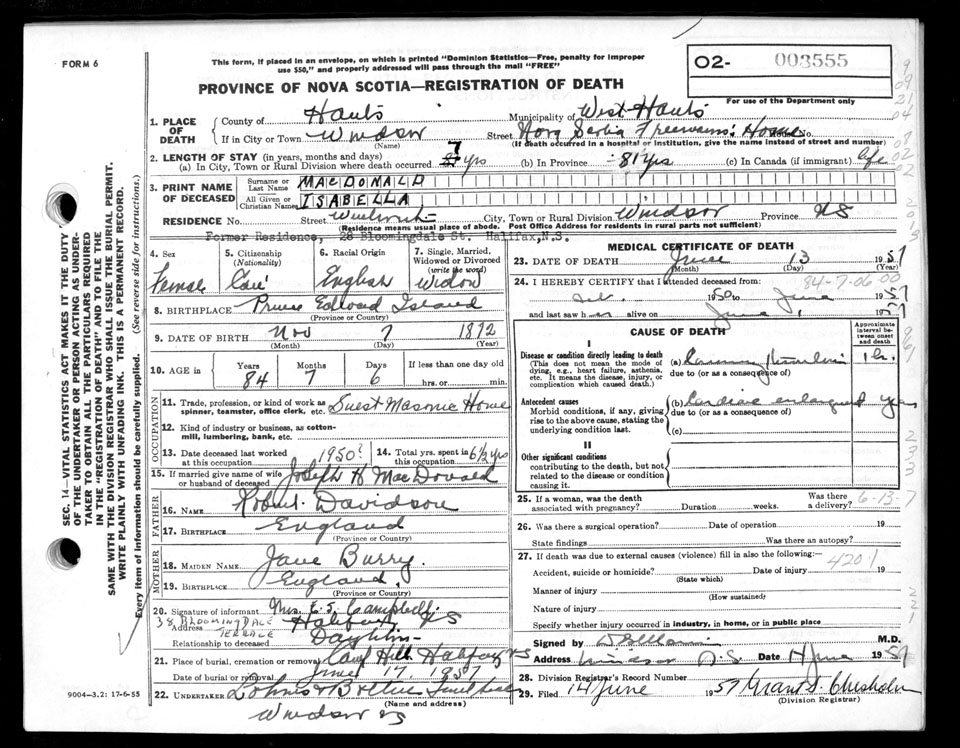 FORM 6
This form, if placed in an envelope, on which is printed "Dominion Statistics—Free, penalty for improper
use $50," and properly addressed will pass through the mail "FREE"
O2- 003555
For use of the Department only
PROVINCE OF NOVA SCOTIA—REGISTRATION OF DEATH
1. PLACE OF DEATH
County of Hants
Municipality of West Hants
If in City or Town Windsor Street Nova Scotia Freemasons' Home No.
(Name) (If death occurred in a hospital or institution, give the name instead of street and number)
2. LENGTH OF STAY (in years, months and days)
(a) In City, Town or Rural Division where death occurred 7 yrs (b) In Province 81 yrs (c) In Canada (if immigrant) Life
3. PRINT NAME OF DECEASED
Surname or Last Name MACDONALD
All Given or Christian Names ISABELLA
RESIDENCE No. Street City, Town or Rural Division Windsor Province NS
(Residence means usual place of abode. Post Office Address for residents in rural parts not sufficient)
Former Residence, 28 Bloomingdale St. Halifax, N.S.
4. Sex Female
5. Citizenship (Nationality) Can
6. Racial Origin English
7. Single, Married, Widowed or Divorced (write the word) Widow
8. BIRTHPLACE Prince Edward Island
(Province or Country)
9. DATE OF BIRTH Nov 7 1872
(Month) (Day) (Year)
10. AGE in Years 84 Months 7 Days 6 If less than one day old hrs. or min.
OCCUPATION
11. Trade, profession, or kind of work as spinner, teamster, office clerk, etc. Guest Masonic Home
12. Kind of industry or business, as cotton-mill, lumbering, bank, etc.
13. Date deceased last worked at this occupation 1950? 14. Total yrs. spent in this occupation 6½ yrs
15. If married give name of wife or husband of deceased Joseph H MacDonald
FATHER
16. Name Robert Davidson
17. Birthplace England
(Province or Country)
MOTHER
18. Maiden Name Jane Burry
19. Birthplace England
(Province or Country)
20. Signature of informant Mrs. E. S. Campbell
38 BLOOMINGDALE TERRACE
Address Halifax NS
Relationship to deceased Daughter
21. Place of burial, cremation or removal Camp Hill Halifax NS
Date of burial or removal June 17, 1957
22. Undertaker
(Name and address)
Windsor NS
9004-3.2: 17-6-55
MEDICAL CERTIFICATE OF DEATH
23. DATE OF DEATH June 13 1957
(Month) (Day) (Year)
24. I HEREBY CERTIFY that I attended deceased from 84-7-06 00
1950 to June 1957
and last saw her alive on June 1957
CAUSE OF DEATH
Approximate interval between onset and death
I
Disease or condition directly leading to death
(This does not mean the mode of dying, e.g., heart failure, asthenia, etc. It means the disease, injury, or complication which caused death.)
(a) Coronary Thrombosis 1 hr.
due to (or as a consequence of)
Antecedent causes
Morbid conditions, if any, giving rise to the above cause, stating the underlying condition last.
(b) Cardiac enlargement years
due to (or as a consequence of)
(c)
II
Other significant conditions
contributing to the death, but not related to the disease or condition causing it.
25. If a woman, was the death associated with pregnancy? Duration weeks. Was there a delivery? 6-13-7
26. Was there a surgical operation? Date of operation 19
State findings Was there an autopsy?
27. If death was due to external causes (violence) fill in also the following:—
420.1
Accident, suicide or homicide? Date of injury 19
(State which)
Manner of injury
(How sustained)
Nature of injury
Specify whether injury occurred in industry, in home, or in public place
Signed by M.D.
Address Windsor N.S. Date 14 June 1957
28. Division Registrar's Record Number
29. Filed 14 June 1957 Grant S. Chisholm
(Division Registrar)
SEC. 14—VITAL STATISTICS ACT MAKES IT THE DUTY
OF THE UNDERTAKER OR PERSON ACTING AS UNDER-
TAKER TO OBTAIN ALL THE PARTICULARS REQUIRED
IN THE "REGISTRATION OF DEATH" AND TO FILE THE
SAME WITH THE DIVISION REGISTRAR WHO SHALL ISSUE THE BURIAL PERMIT.
WRITE PLAINLY WITH UNFADING INK. THIS IS A PERMANENT RECORD.
Every item of information should be carefully supplied. (See reverse side for instructions.)